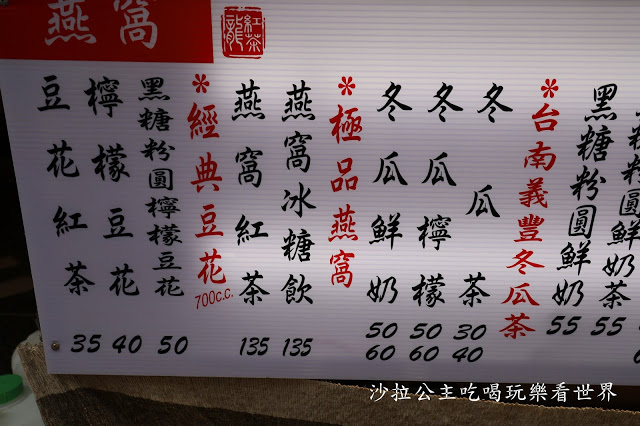 燕窩
紅茶龍
黑糖粉圓鮮奶茶
黑糖粉圓鮮奶 55
*台南義豐冬瓜茶
冬瓜茶 30 40
冬瓜檸檬 50 60
冬瓜鮮奶 50 60
*極品燕窩
燕窩冰糖飲 135
燕窩紅茶 135
*經典豆花 700c.c.
黑糖粉圓檸檬豆花 50
檸檬豆花 40
豆花紅茶 35
沙拉公主吃喝玩樂看世界